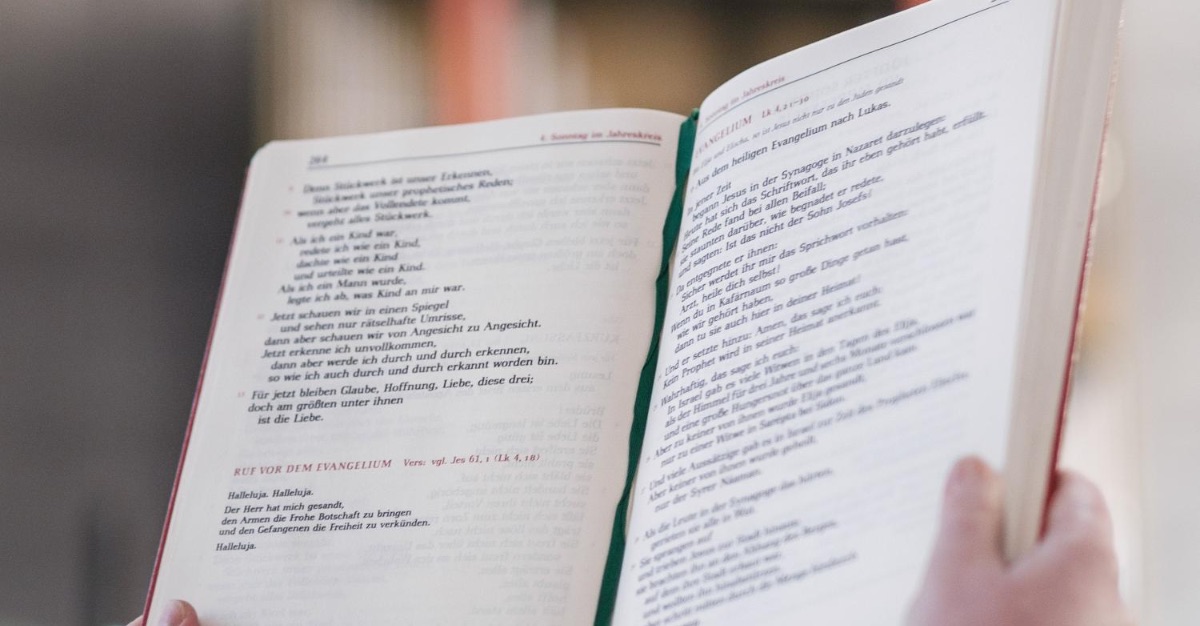 268
4. Sonntag im Jahreskreis
Denn Stückwerk ist unser Erkennen,
Stückwerk unser prophetisches Reden;
wenn aber das Vollendete kommt,
vergeht alles Stückwerk.
Als ich ein Kind war,
redete ich wie ein Kind,
dachte wie ein Kind
und urteilte wie ein Kind.
Als ich ein Mann wurde,
legte ich ab, was Kind an mir war.
Jetzt schauen wir in einen Spiegel
und sehen nur rätselhafte Umrisse,
dann aber schauen wir von Angesicht zu Angesicht.
Jetzt erkenne ich unvollkommen,
dann aber werde ich durch und durch erkennen,
so wie ich auch durch und durch erkannt worden bin.
13 Für jetzt bleiben Glaube, Hoffnung, Liebe, diese drei;
doch am größten unter ihnen
ist die Liebe.
RUF VOR DEM EVANGELIUM Vers: vgl. Jes 61, 1 (Lk 4, 18)
Halleluja. Halleluja.
Der Herr hat mich gesandt,
den Armen die Frohe Botschaft zu bringen
und den Gefangenen die Freiheit zu verkünden.
Halleluja.
Sonntag im Jahreskreis
EVANGELIUM Lk 4, 21–30
Wie Elija und Elischa, so ist Jesus nicht nur zu den Juden gesandt
Aus dem heiligen Evangelium nach Lukas.
In jener Zeit
begann Jesus in der Synagoge in Nazaret darzulegen:
Heute hat sich das Schriftwort, das ihr eben gehört habt, erfüllt.
Seine Rede fand bei allen Beifall;
sie staunten darüber, wie begnadet er redete,
und sagten: Ist das nicht der Sohn Josefs?
Da entgegnete er ihnen:
Sicher werdet ihr mir das Sprichwort vorhalten:
Arzt, heile dich selbst!
Wenn du in Kafarnaum so große Dinge getan hast,
wie wir gehört haben,
dann tu sie auch hier in deiner Heimat!
Und er setzte hinzu: Amen, das sage ich euch:
Kein Prophet wird in seiner Heimat anerkannt.
Wahrhaftig, das sage ich euch:
In Israel gab es viele Witwen in den Tagen des Elija,
als der Himmel für drei Jahre und sechs Monate verschlossen war
und eine große Hungersnot über das ganze Land kam.
Aber zu keiner von ihnen wurde Elija gesandt,
nur zu einer Witwe in Sarepta bei Sidon.
Und viele Aussätzige gab es in Israel zur Zeit des Propheten Elischa.
Aber keiner von ihnen wurde geheilt,
nur der Syrer Naaman.
Als die Leute in der Synagoge das hörten,
gerieten sie alle in Wut.
Sie sprangen auf
und trieben Jesus zur Stadt hinaus;
sie brachten ihn an den Abhang des Berges,
auf dem ihre Stadt erbaut war,
und wollten ihn hinabstürzen.